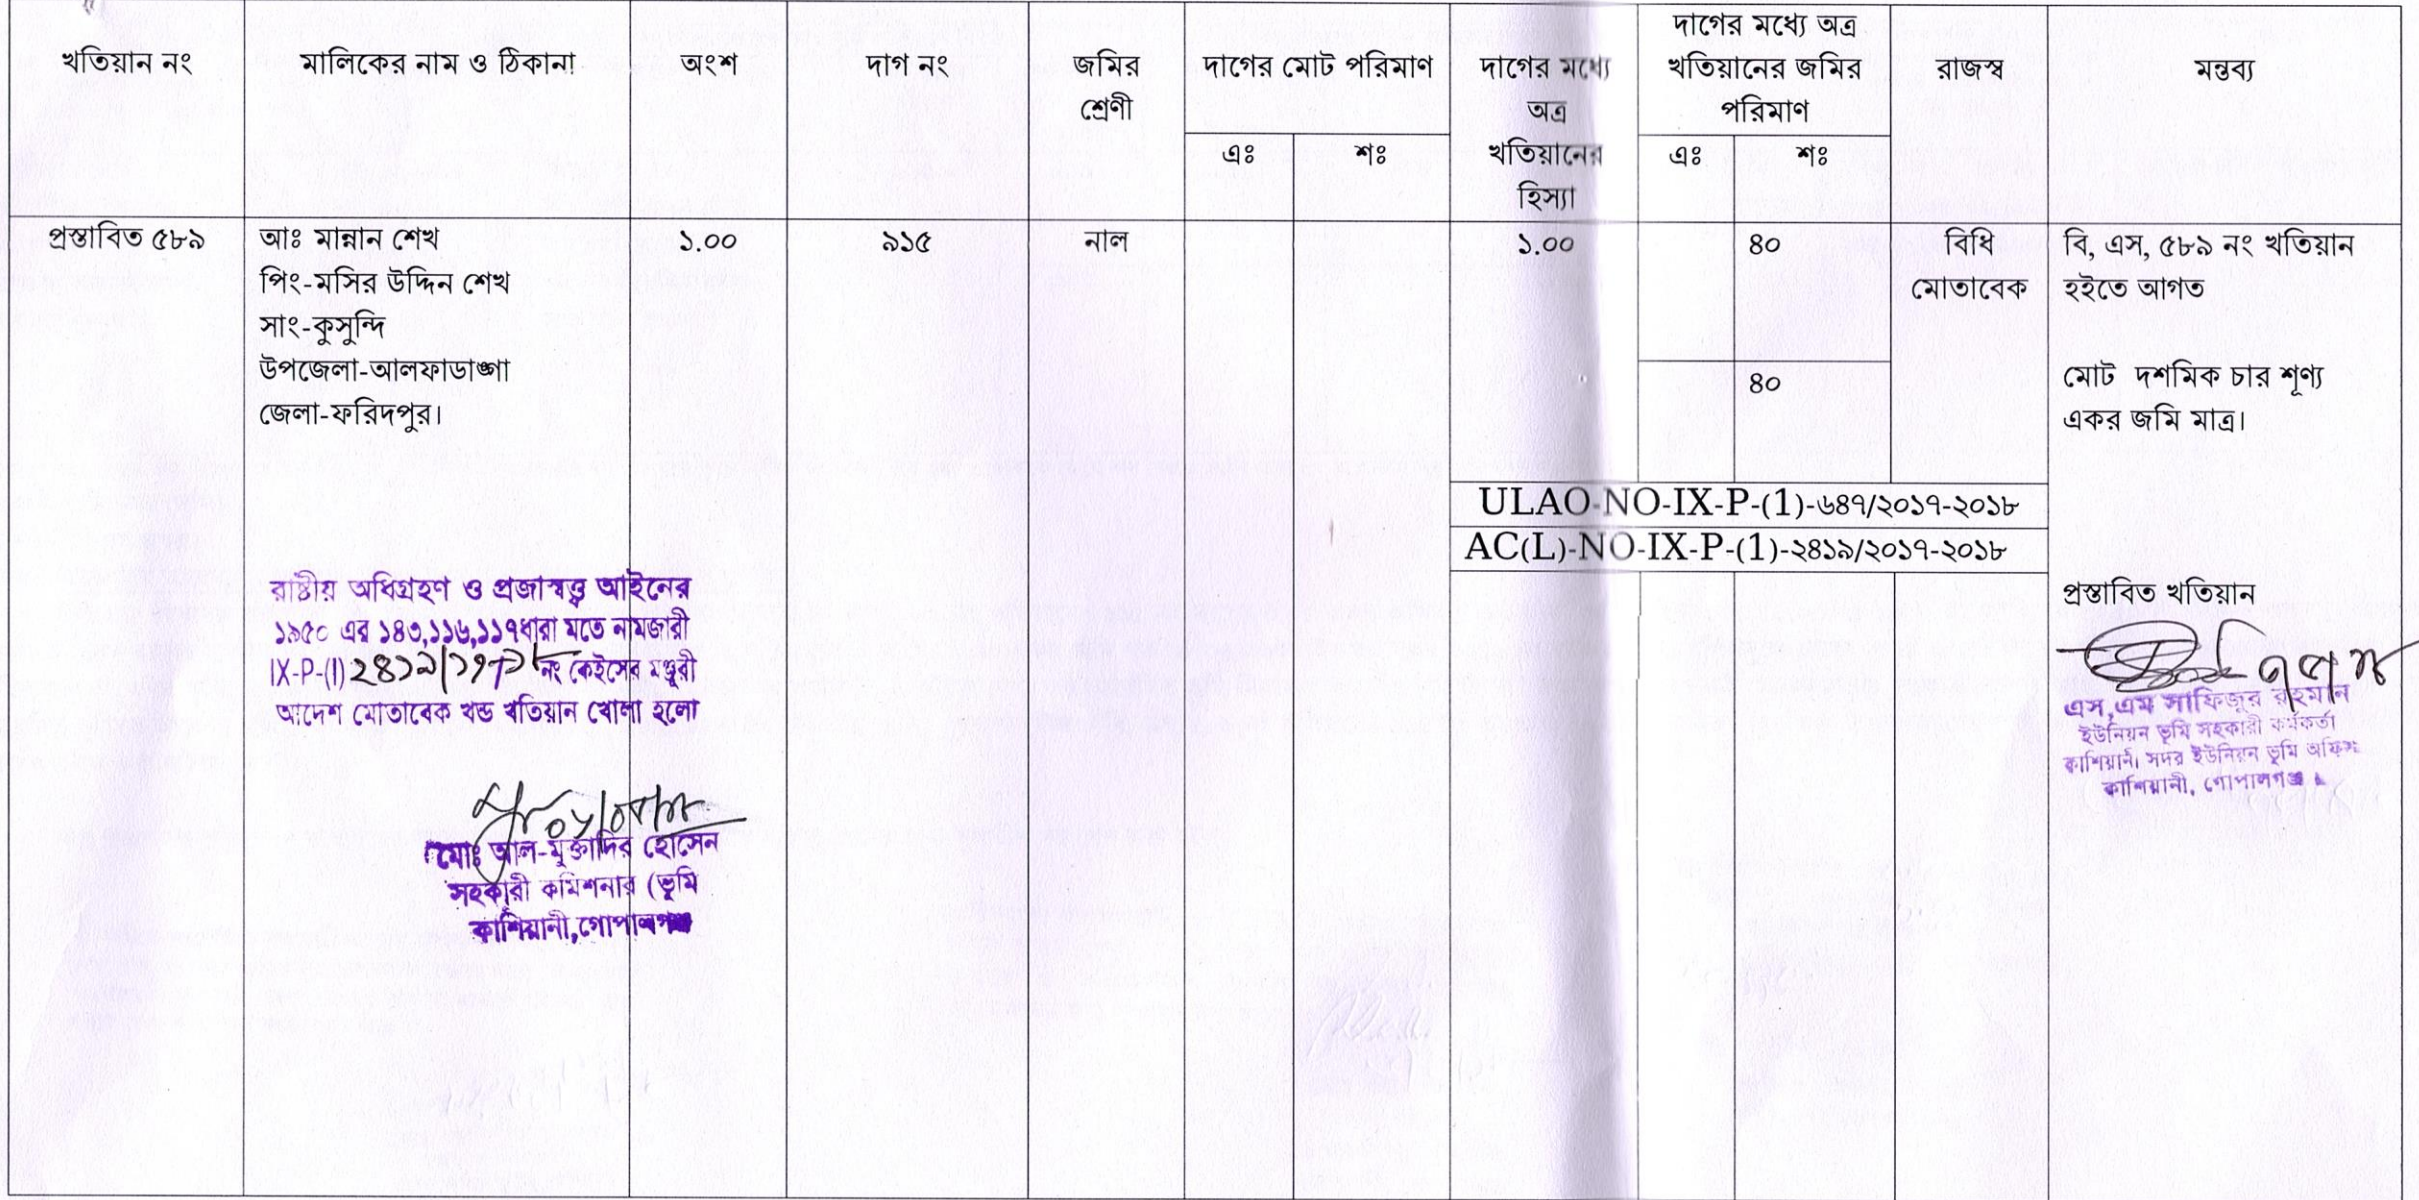 খতিয়ান নং
মালিকের নাম ও ঠিকানা
অংশ
দাগ নং
জমির
শ্রেণী
দাগের মোট পরিমাণ
এঃ
শঃ
দাগের মধ্যে
অত্র
খতিয়ানের
হিস্যা
দাগের মধ্যে অত্র
খতিয়ানের জমির
পরিমাণ
এঃ
শঃ
রাজস্ব
মন্তব্য
প্রস্তাবিত ৫৮৯
আঃ মান্নান শেখ
পিং-মসির উদ্দিন শেখ
সাং-কুসুন্দি
উপজেলা-আলফাডাঙ্গা
জেলা-ফরিদপুর।
১.০০
৯১৫
নাল
১.০০
৪০
৪০
বিধি
মোতাবেক
বি, এস, ৫৮৯ নং খতিয়ান
হইতে আগত
মোট দশমিক চার শূণ্য
একর জমি মাত্র।
ULAO-NO-IX-P-(1)-৬৪৭/২০১৭-২০১৮
AC(L)-NO-IX-P-(1)-২৪১৯/২০১৭-২০১৮
রাষ্টীয় অধিগ্রহণ ও প্রজাস্বত্ত্ব আইনের
১৯৫০ এর ১৪৩,১১৬,১১৭ধারা মতে নামজারী
IX-P-(I) ২৪১৯/১৭-১৮ নং কেইসের মঞ্জুরী
আদেশ মোতাবেক খন্ড খতিয়ান খোলা হলো
মোঃ আল-মুক্তাদির হোসেন
সহকারী কমিশনার (ভূমি
কাশিয়ানী,গোপালগঞ্জ
প্রস্তাবিত খতিয়ান
এস,এম সাফিজুর রহমান
ইউনিয়ন ভূমি সহকারী কর্মকর্তা
কাশিয়ানী সদর ইউনিয়ন ভূমি অফিস
কাশিয়ানী, গোপালগঞ্জ